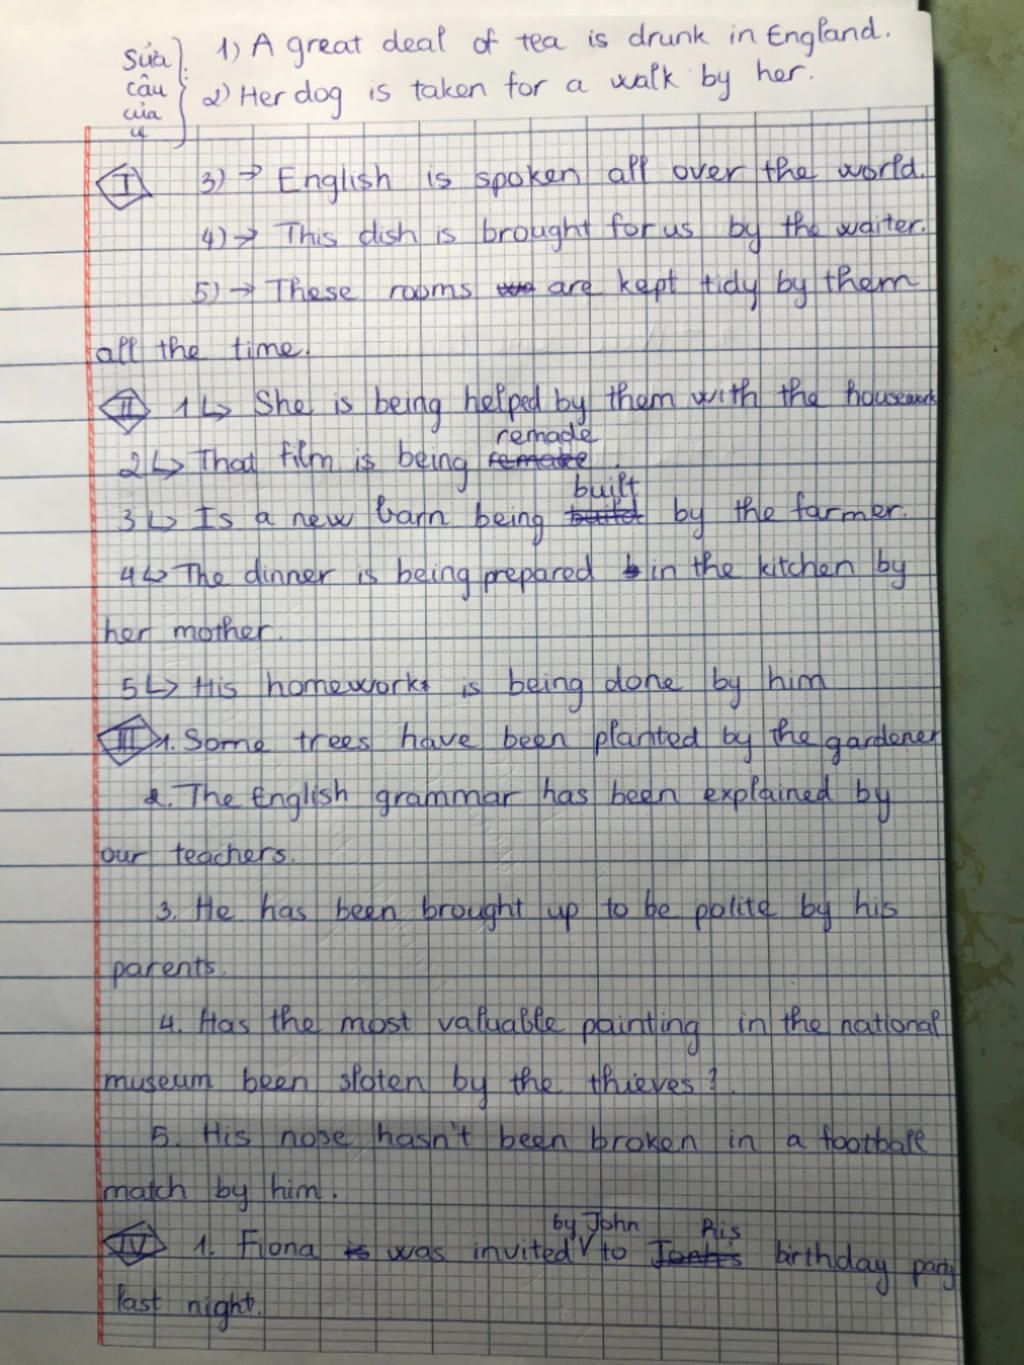 Sửa câu của 4 } 1) A great deal of tea is drunk in England.
2) Her dog is taken for a walk by her.
I 3) → English is spoken all over the world.
4) → This dish is brought for us by the waiter.
5) → These rooms are kept tidy by them
all the time.
II 1 ↳ She is being helped by them with the housework
remade
2 ↳ That film is being remake .
built
3 ↳ Is a new barn being build by the farmer.
4 ↳ The dinner is being prepared in the kitchen by
her mother.
5 ↳ His homework is being done by him
III 1. Some trees have been planted by the gardener
2. The English grammar has been explained by
our teachers.
3. He has been brought up to be polite by his
parents.
4. Has the most valuable painting in the national
museum been sloten by the thieves?
5. His nose hasn't been broken in a football
match by him.
by John his
IV 1. Fiona is was invited to birthday party
last night.